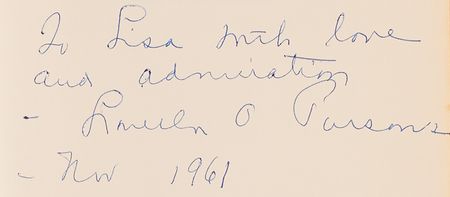 To Lisa with love
and admiration
- Louella O Parsons
- Nov 1961